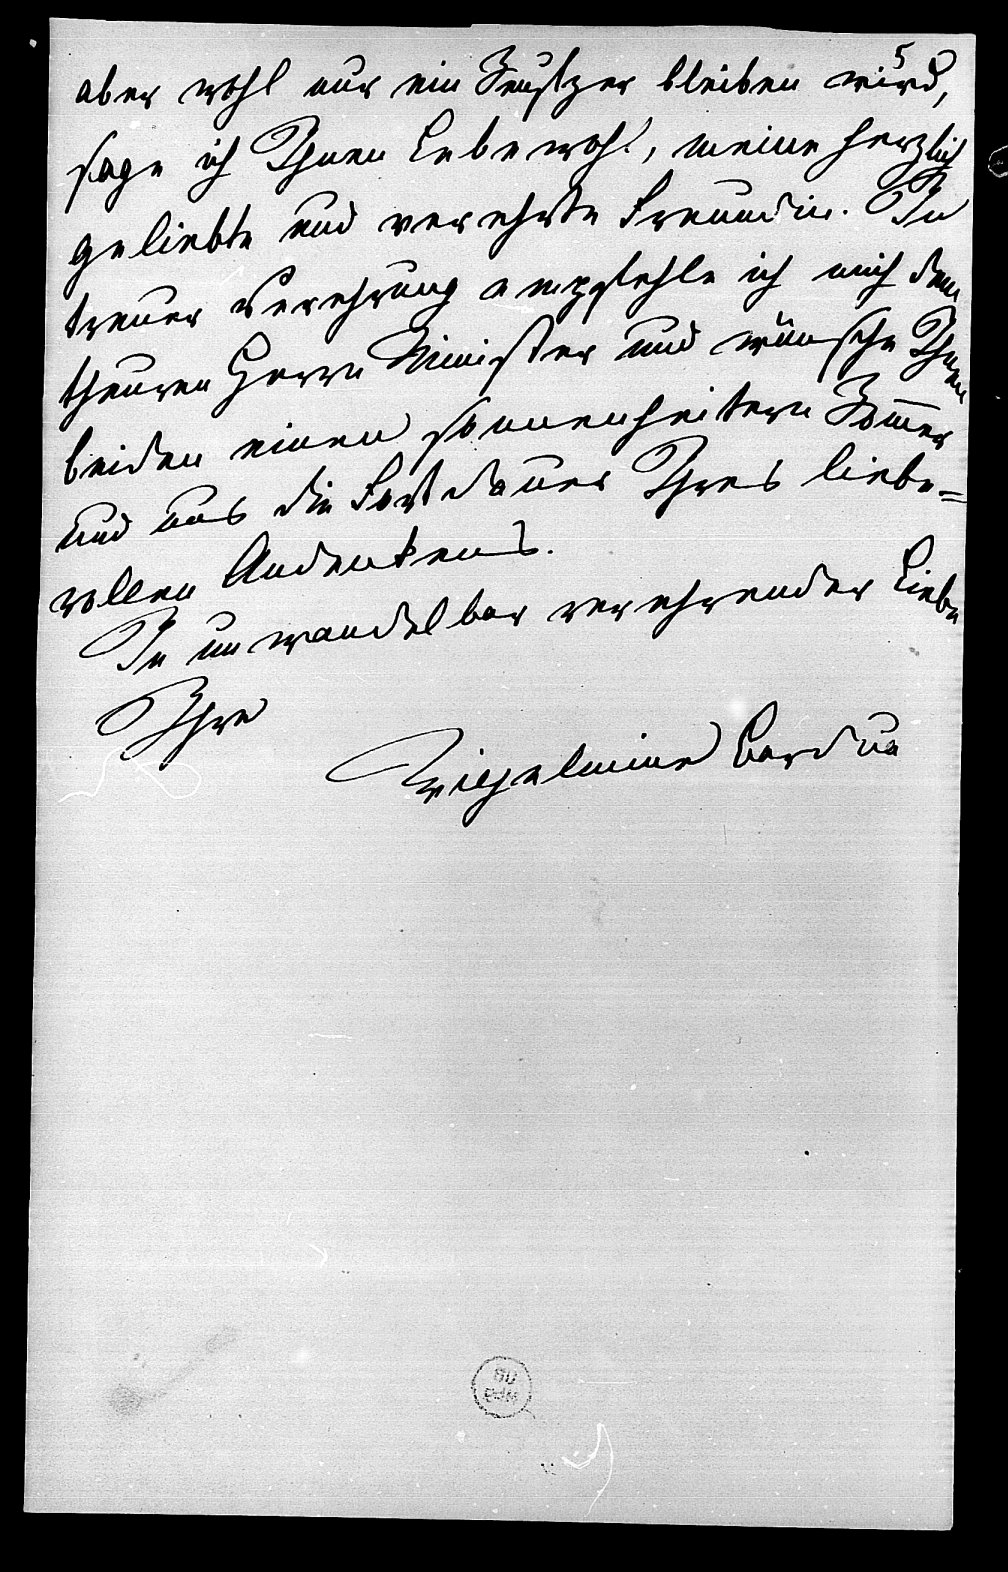 5
aber wohl nur ein Seufzer bleiben wird,
sage ich Ihnen Lebewohl, meine herzlich
geliebte und verehrte Freundin. In
treuer Verehrung empfehle ich mich dem
theuren Herrn Minister und wünsche Ihnen
beiden einen sonnenheitern Som̄er
und uns die Fortdauer Ihres liebe=
vollen Andenkens.
In unwandelbar verehrender Liebe
Ihre
Wilhelmine Bardua